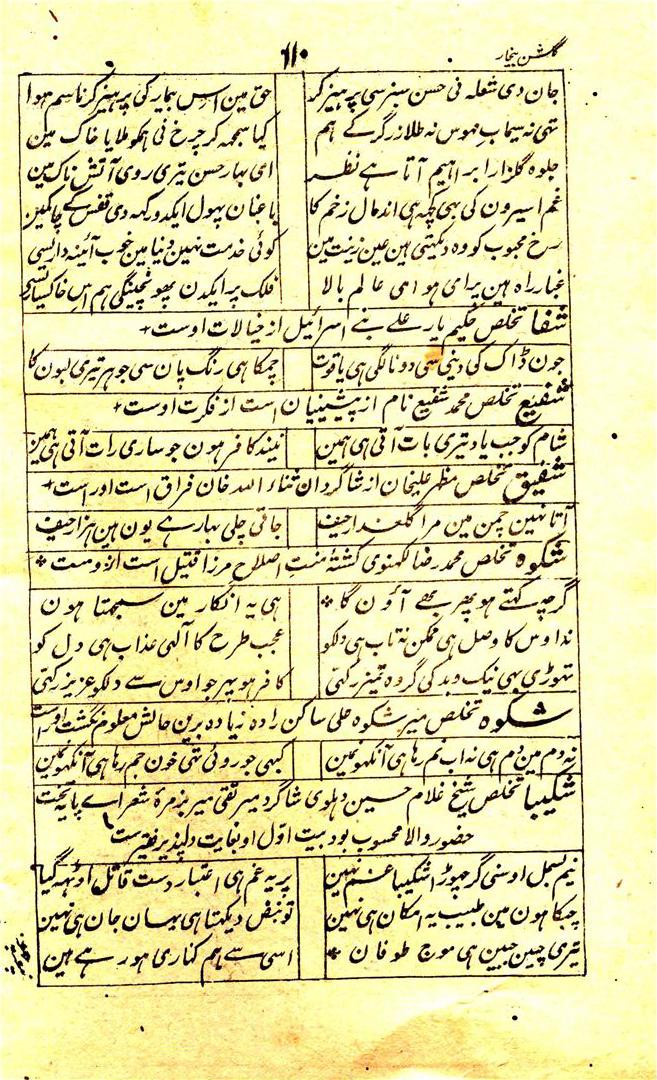 گلشن بیخار
۱۱۰
جان دی شعلہ نی حسن سبز سی پرہیز کر حق مین اس بیمار کی پرہیز کرنا سم ہوا
تہی نہ سیماب مہوس نہ طلا زرگر کے ہم کیا سمجہ کر چرخ نی ہمکو ملایا خاک مین
جلوہ گلزار ابراہیم آتا ہے نظر ای بہار حسن تیری روی آتش ناک مین
غم اسیرون کی بہی کچہ ہی اندمال زخم کا باغبان پہول ایکدو رکہہ دی قفس کے چاکمین
رخ محبوب کو وہ دیکہتی ہین عین زینت مین کوئی خدمت نہین دنیا مین خوب آئینہ داریسی
غبار راہ ہین پر ای ہوا ای عالم بالا فلک پر ایکدن پہونچینگی ہم اس خاکساریسی
شفا تخلص حکیم یار علے بنے اسرائیل از خیالات اوست
جون ڈاک کی دینی سی دونا لگی ہی یاقوت چمکا ہی رنگ پان سی جوہر تیری لبون کا
شفیع تخلص محمد شفیع نام از پیشینیان است از فکرت اوست
شام کو جب یاد تیری بات آتی ہی ہمین نیند کافر ہون جو ساری رات آتی ہی ہمین
شفیق تخلص مظہر علیخان از شاگردان ثناء اللہ خان فراق است اوراست
آتا نہین چمن مین مرا گلعذار حیف جاتی چلی بہار ہے یون ہین ہزار حیف
شکوہ تخلص محمد رضا لکہنوی کشتۂ منت اصلاح مرزا قتیل است ازوست
گرچہ کہتے ہو پھر بھے آؤن گا ہی یہ انکار مین سمجہتا ہون
نہ اوس کا وصل ہی ممکن نہ تاب ہی دلکو عجب طرح کا الہی عذاب ہی دل کو
تہوڑی بہی نیک و بد کی گر وہ تمیز رکہتی کافر ہو پہر جو اوس سے دلکو عزیز رکہتی
شکوہ تخلص میر شکوہ علی ساکن رادہ زیادہ برین حالش معلوم نگشت اوراست
نہ دم مین دم ہی نہ اب نم رہا ہی آنکہونمین کبہی جو روئی تہی خون جم رہا ہی آنکہونمین
شکیبا تخلص شیخ غلام حسین دہلوی شاگرد میر تقی میر بزمرۂ شعراے پایہ تخت
حضور والا محسوب بود بیت اول او بغایت دلپذیر فقیرست
نیم بسمل اوسنی گر چہوڑا شکیبا غم نہین پر یہ غم ہی اعتبار دست قاتل اوٹہہ گیا
چپکا ہون مین طبیب یہ امکان ہی نہین تو نبض دیکہتا ہی یہان جان ہی نہین
تیری چین جبین ہی موج طوفان اسی سے ہم کناری ہو رہے ہین